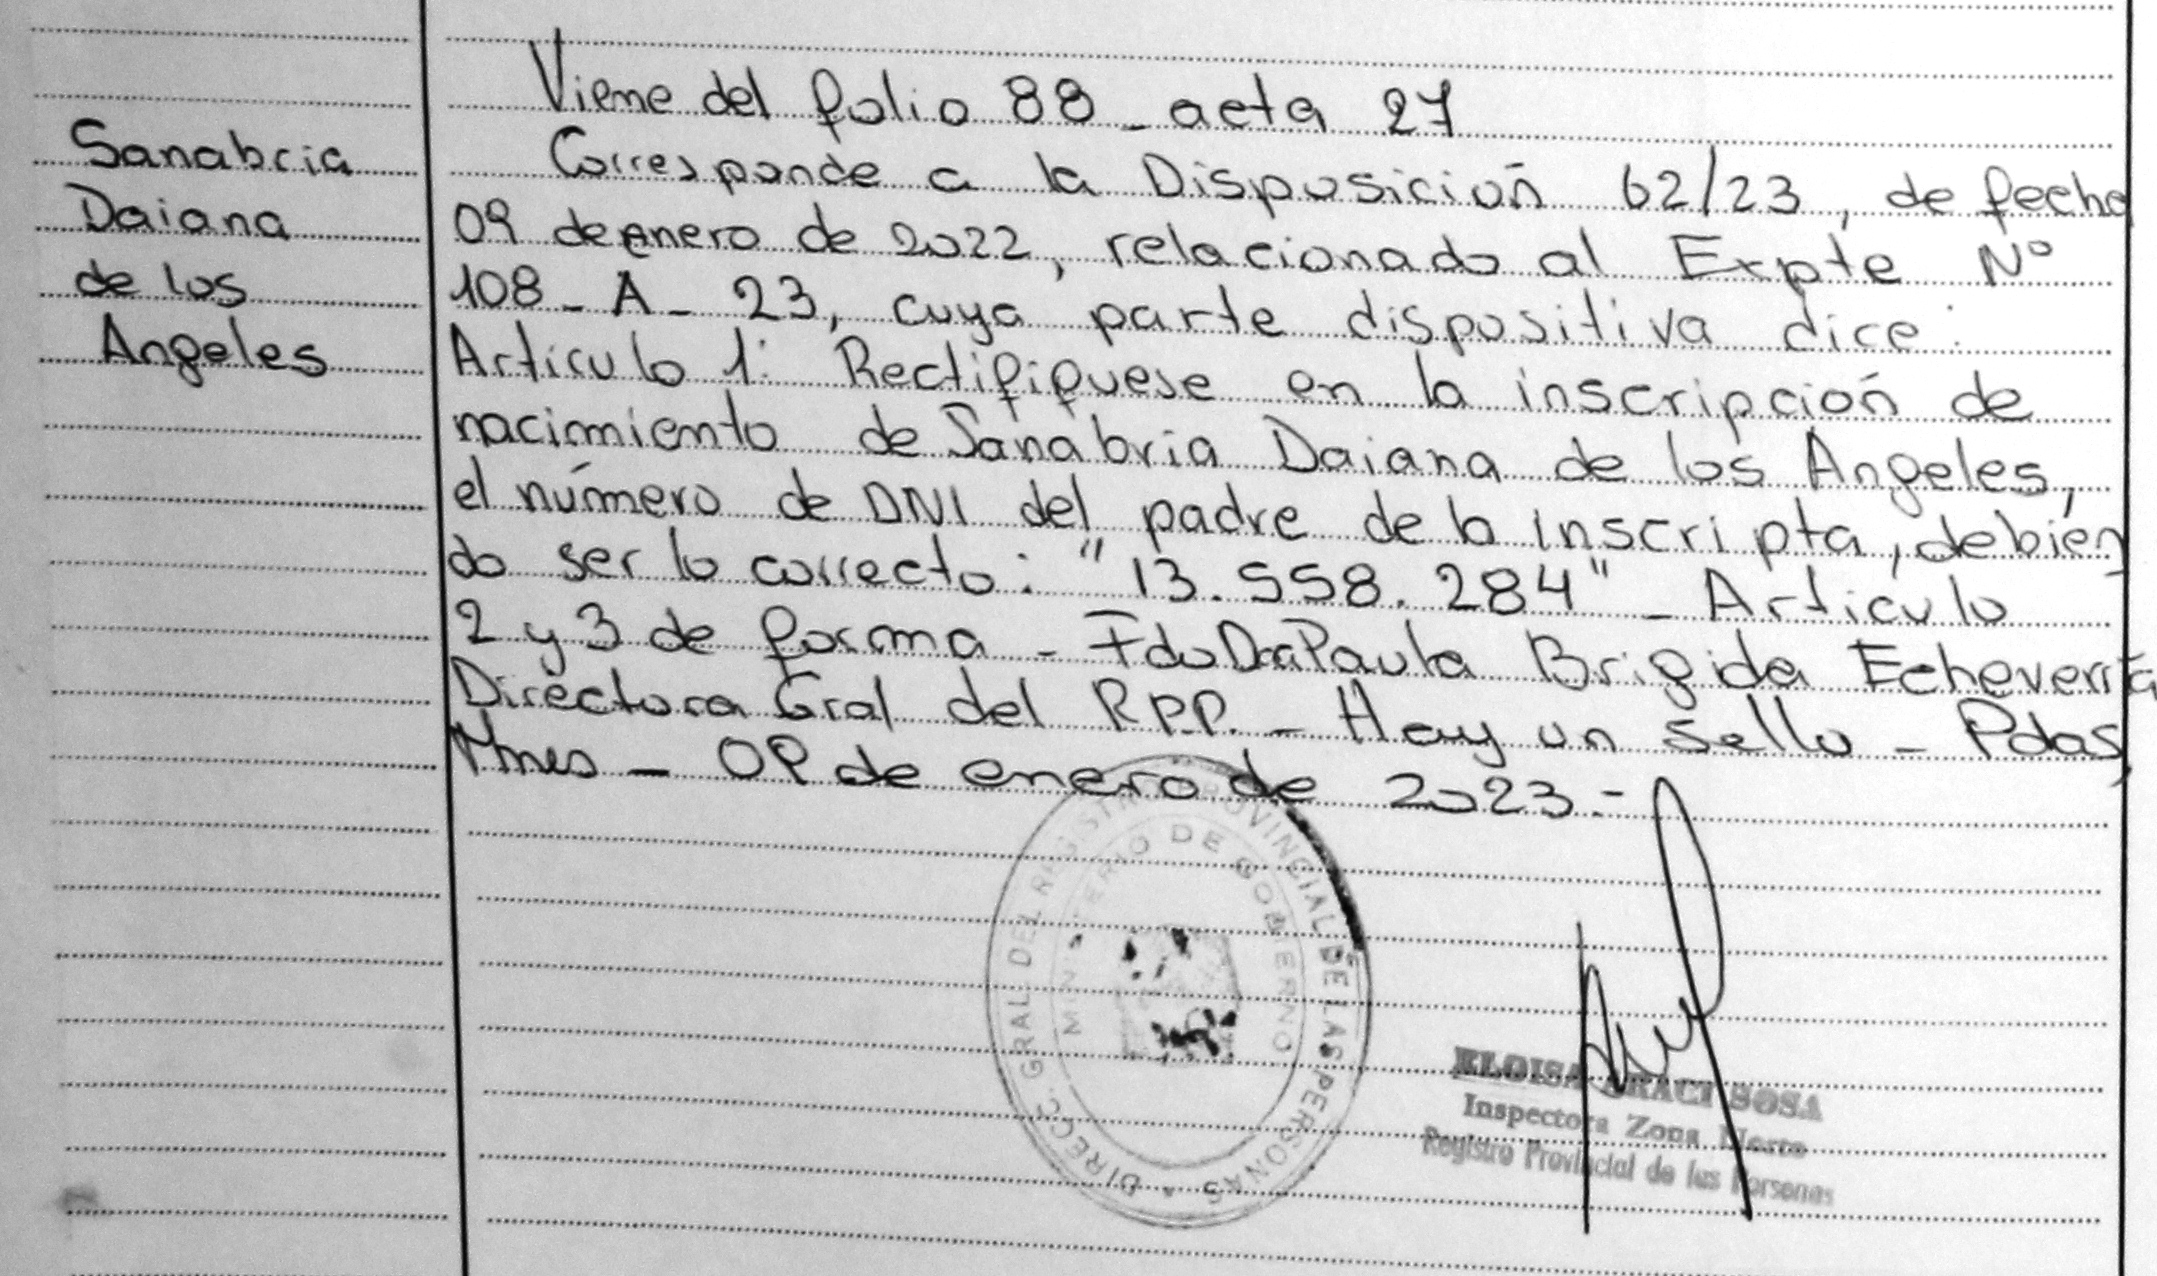 Sanabria
Daiana
de los
Angeles
Viene del folio 88 - acta 27
Corresponde a la Disposición 62/23, de fecha
09 de enero de 2022, relacionado al Expte Nº
108 - A - 23, cuya parte dispositiva dice:
Artículo 1: Rectifiquese en la inscripción de
nacimiento de Sanabria Daiana de los Angeles,
el número de DNI del padre de la inscripta, debien
do ser lo correcto: "13.558.284" - Artículo
2 y 3 de forma - Fdo Dra Paula Brigida Echeverria
Directora Gral del R.P.P. - Hay un sello - Pdas,
Mnes - 09 de enero de 2023 -
DIRECC. GRAL. DEL REGISTRO PROVINCIAL DE LAS PERSONAS
MINISTERIO DE GOBIERNO
ELOISA ARACI SOSA
Inspectora Zona Norte
Registro Provincial de las Personas